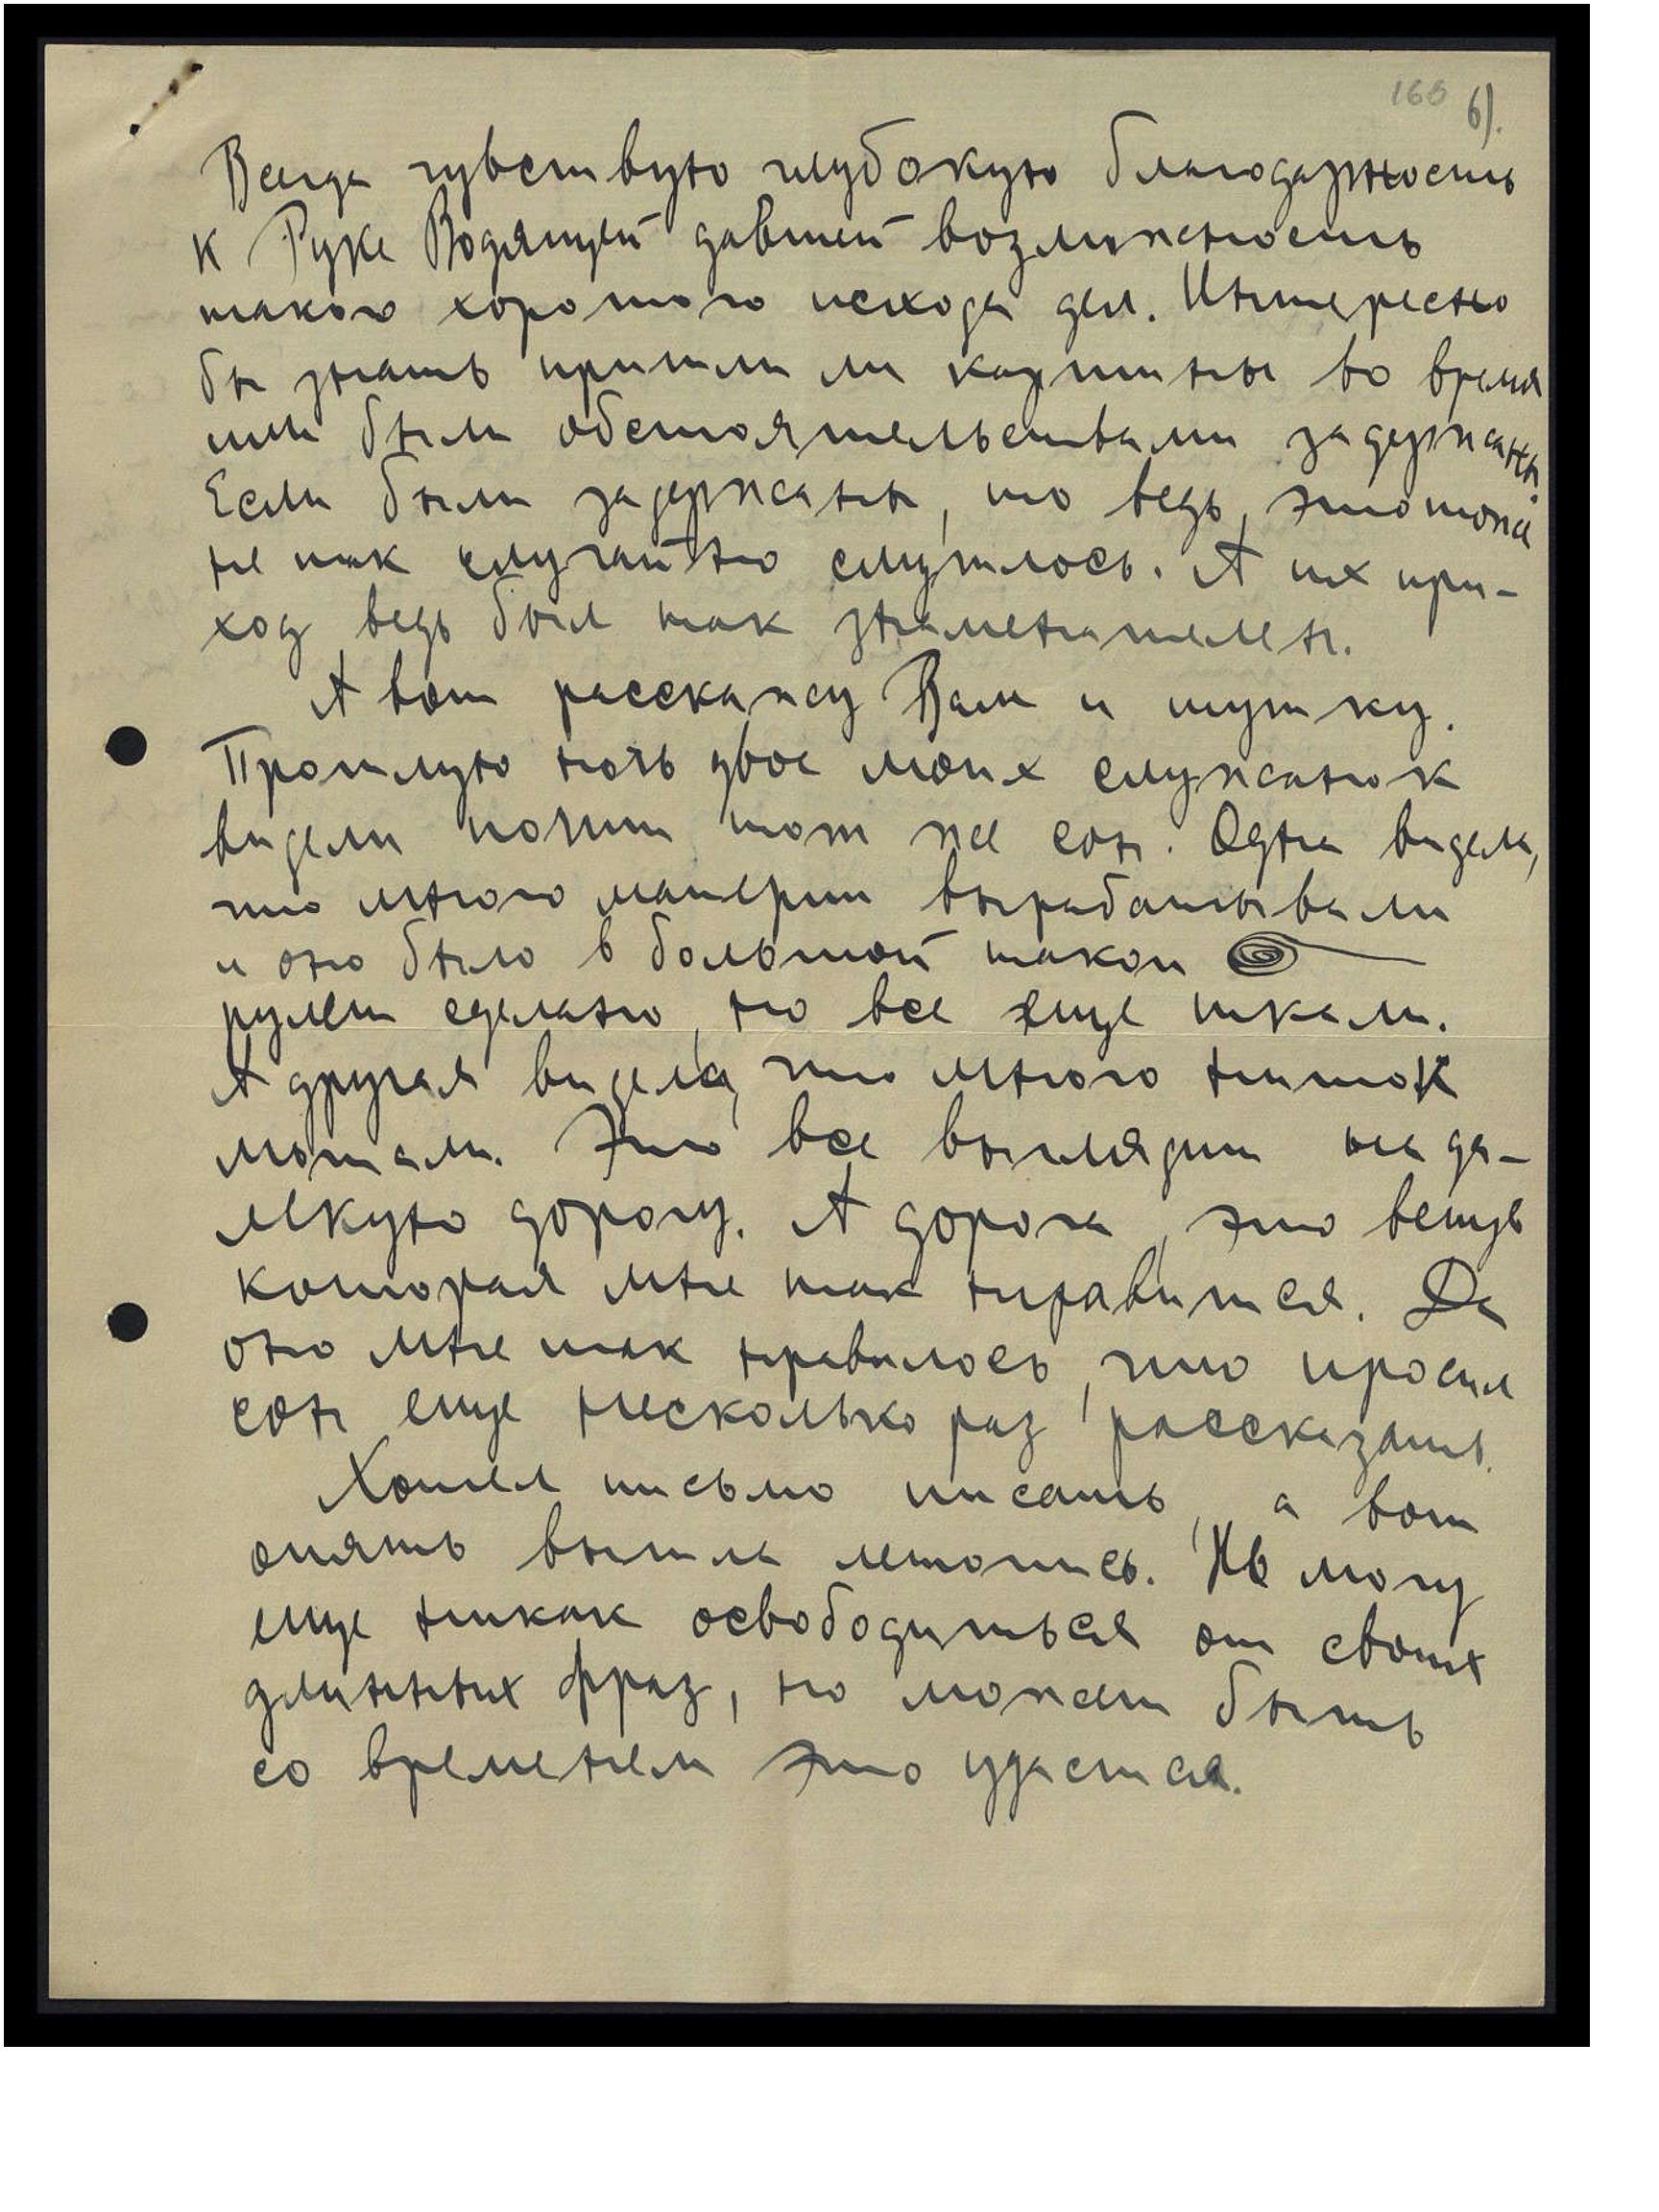 166 6).
Всегда чувствую глубокую благодарность
к Руке Водящей давшей возможность
такого хорошого исхода дел. Интересно
бы знать пришли ли картины во время
или были обстоятельствами задержаны.
Если были задержаны, то ведь, это тоже
не так случайно случилось. А их при-
ход ведь был так знаменателен.
А вот расскажу Вам и шутку.
Прошлую ночь двое моих служанок
видели почти тот же сон. Одна видела,
что много материи вырабатывали
и оно было в большой такой
рулет сделано, но все еще ткали.
А другая видела, что много ниток
мотали. Это все выглядит на да-
лекую дорогу. А дорога, это вещь
которая мне так нравится. Да
оно мне так нравилось, что просил
сон еще несколько раз рассказать.
Хотел письмо писать, а вот
опять вышла летопись. Не могу
еще никак освободиться от своих
длинных фраз, но может быть
со временем это удастся.